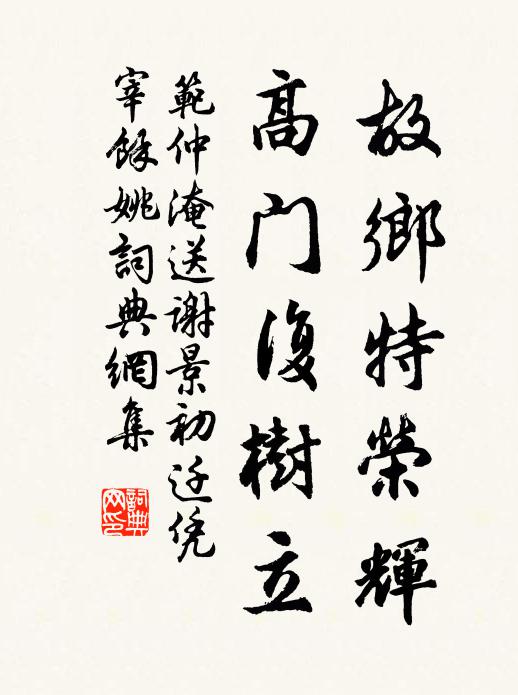 故鄉特榮輝
高门復樹立
範仲淹送谢景初迁凭
宰餘姚詞典網集
詞典
网印